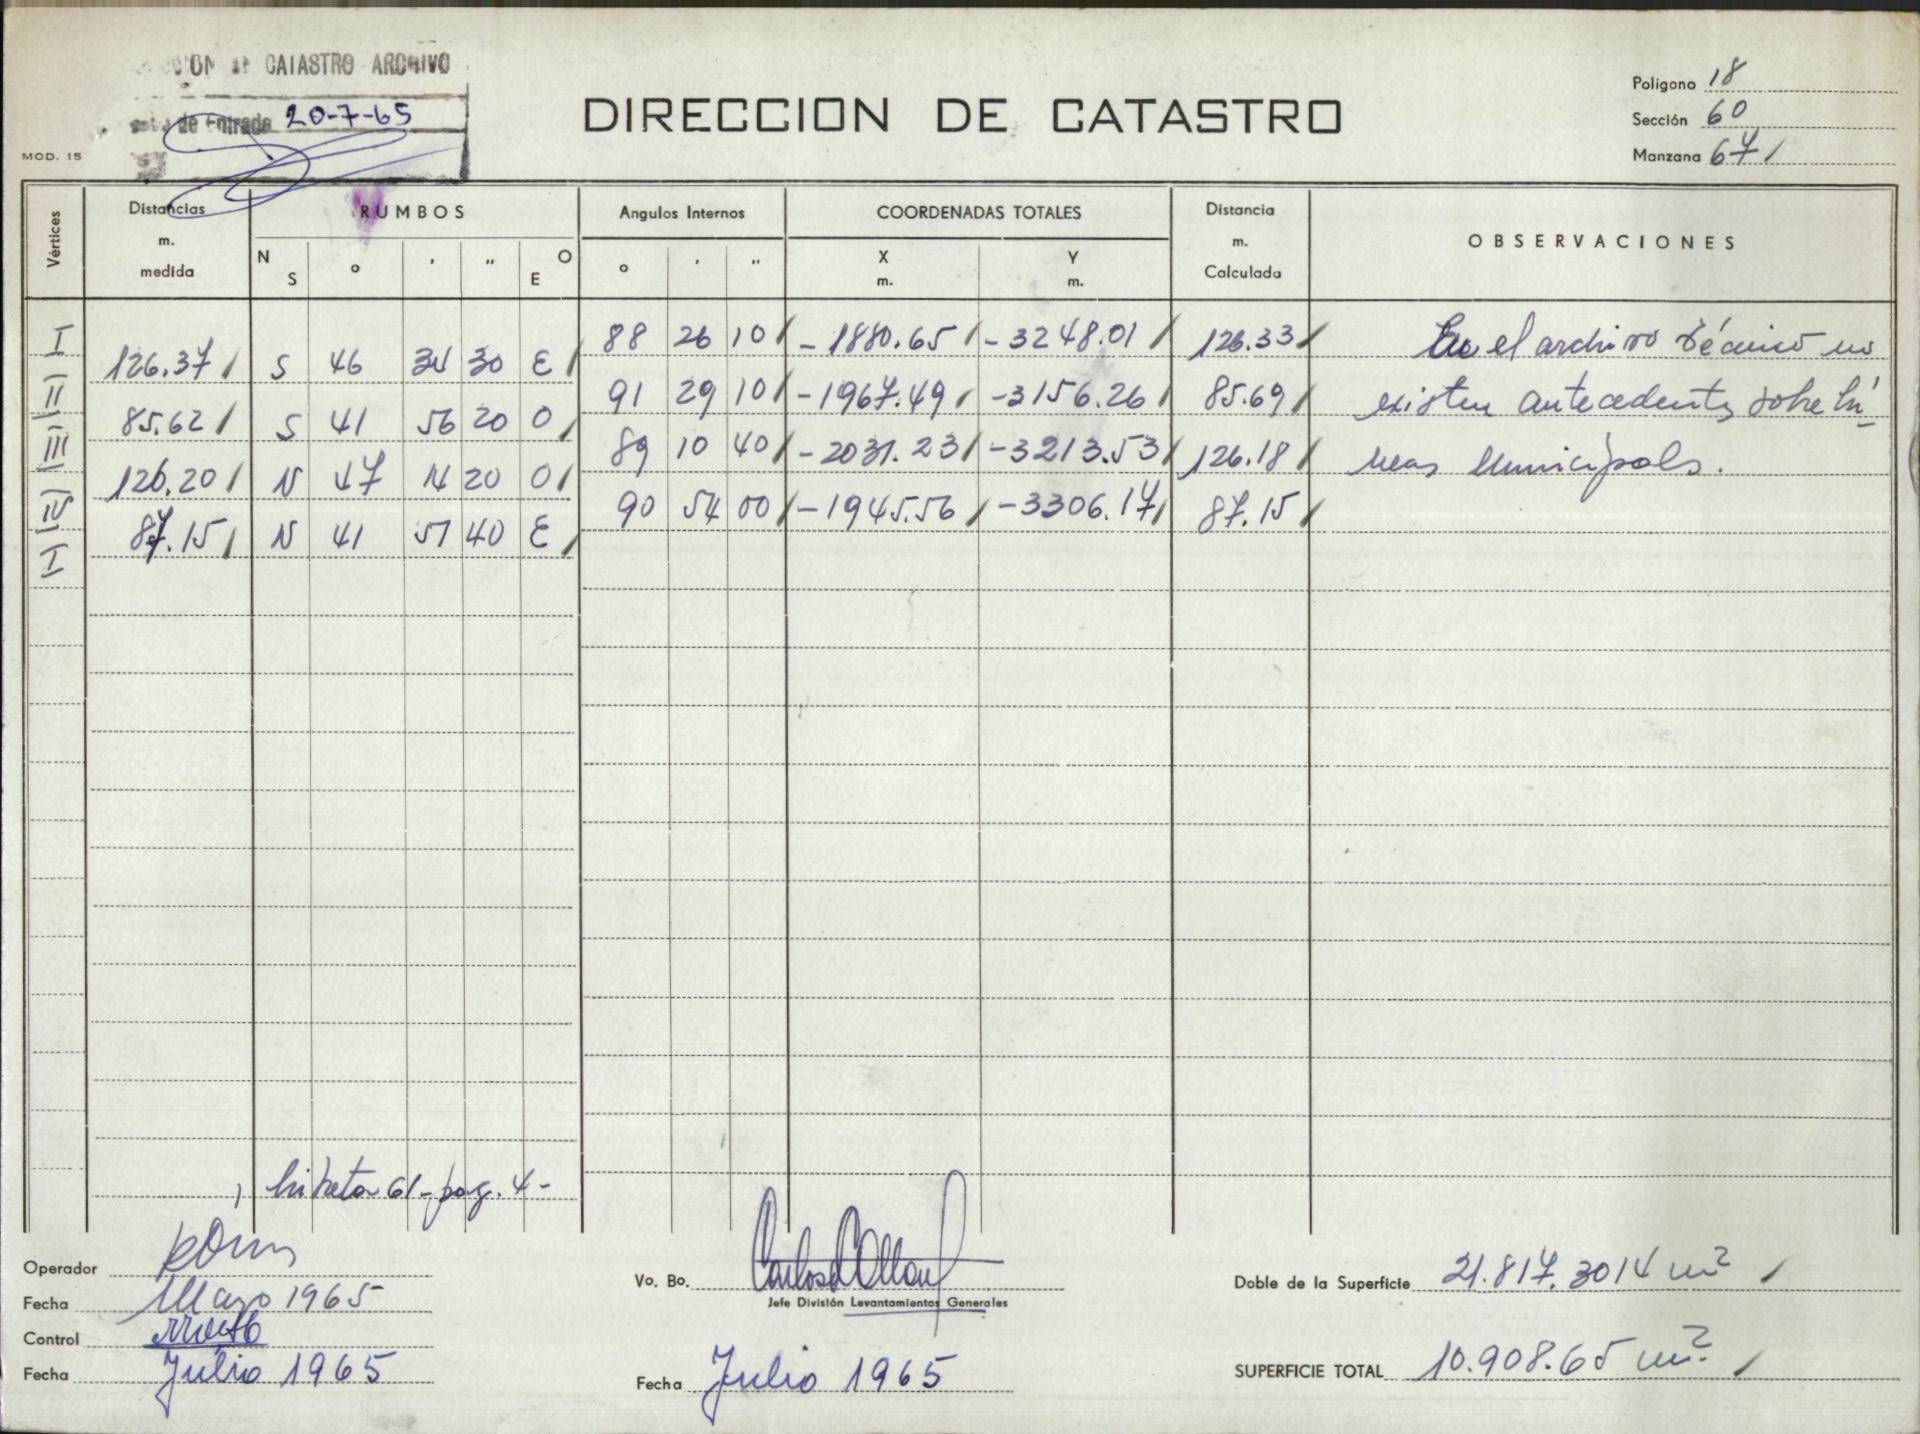 CATASTRO ARCHIVO
de Entrada 20-7-65
MOD. 15
DIRECCION DE CATASTRO
Polígono 18
Sección 60
Manzana 67
Vértices
Distancias m. medida
RUMBOS
N S ° ' " O E
Angulos Internos
° ' "
COORDENADAS TOTALES
X m. Y m.
Distancia m. Calculada
OBSERVACIONES
I 88 26 10 -1880.65 -3248.01 126.33 En el archivo técnico no
126.37 S 46 34 30 E
II 91 29 10 -1967.49 -3156.26 85.69 existen antecedentes sobre lí-
85.62 S 41 56 20 O
III 89 10 40 -2031.23 -3213.53 126.18 neas municipals.
126.20 N 47 14 20 O
IV 90 54 00 -1945.56 -3306.17 87.15
87.15 N 41 51 40 E
I
libreta 61-pag. 4-
Operador
Fecha Mayo 1965
Control
Fecha Julio 1965
Vo. Bo.
Jefe División Levantamientos Generales
Fecha Julio 1965
Doble de la Superficie 21.817.3014 m²
SUPERFICIE TOTAL 10.908.65 m².